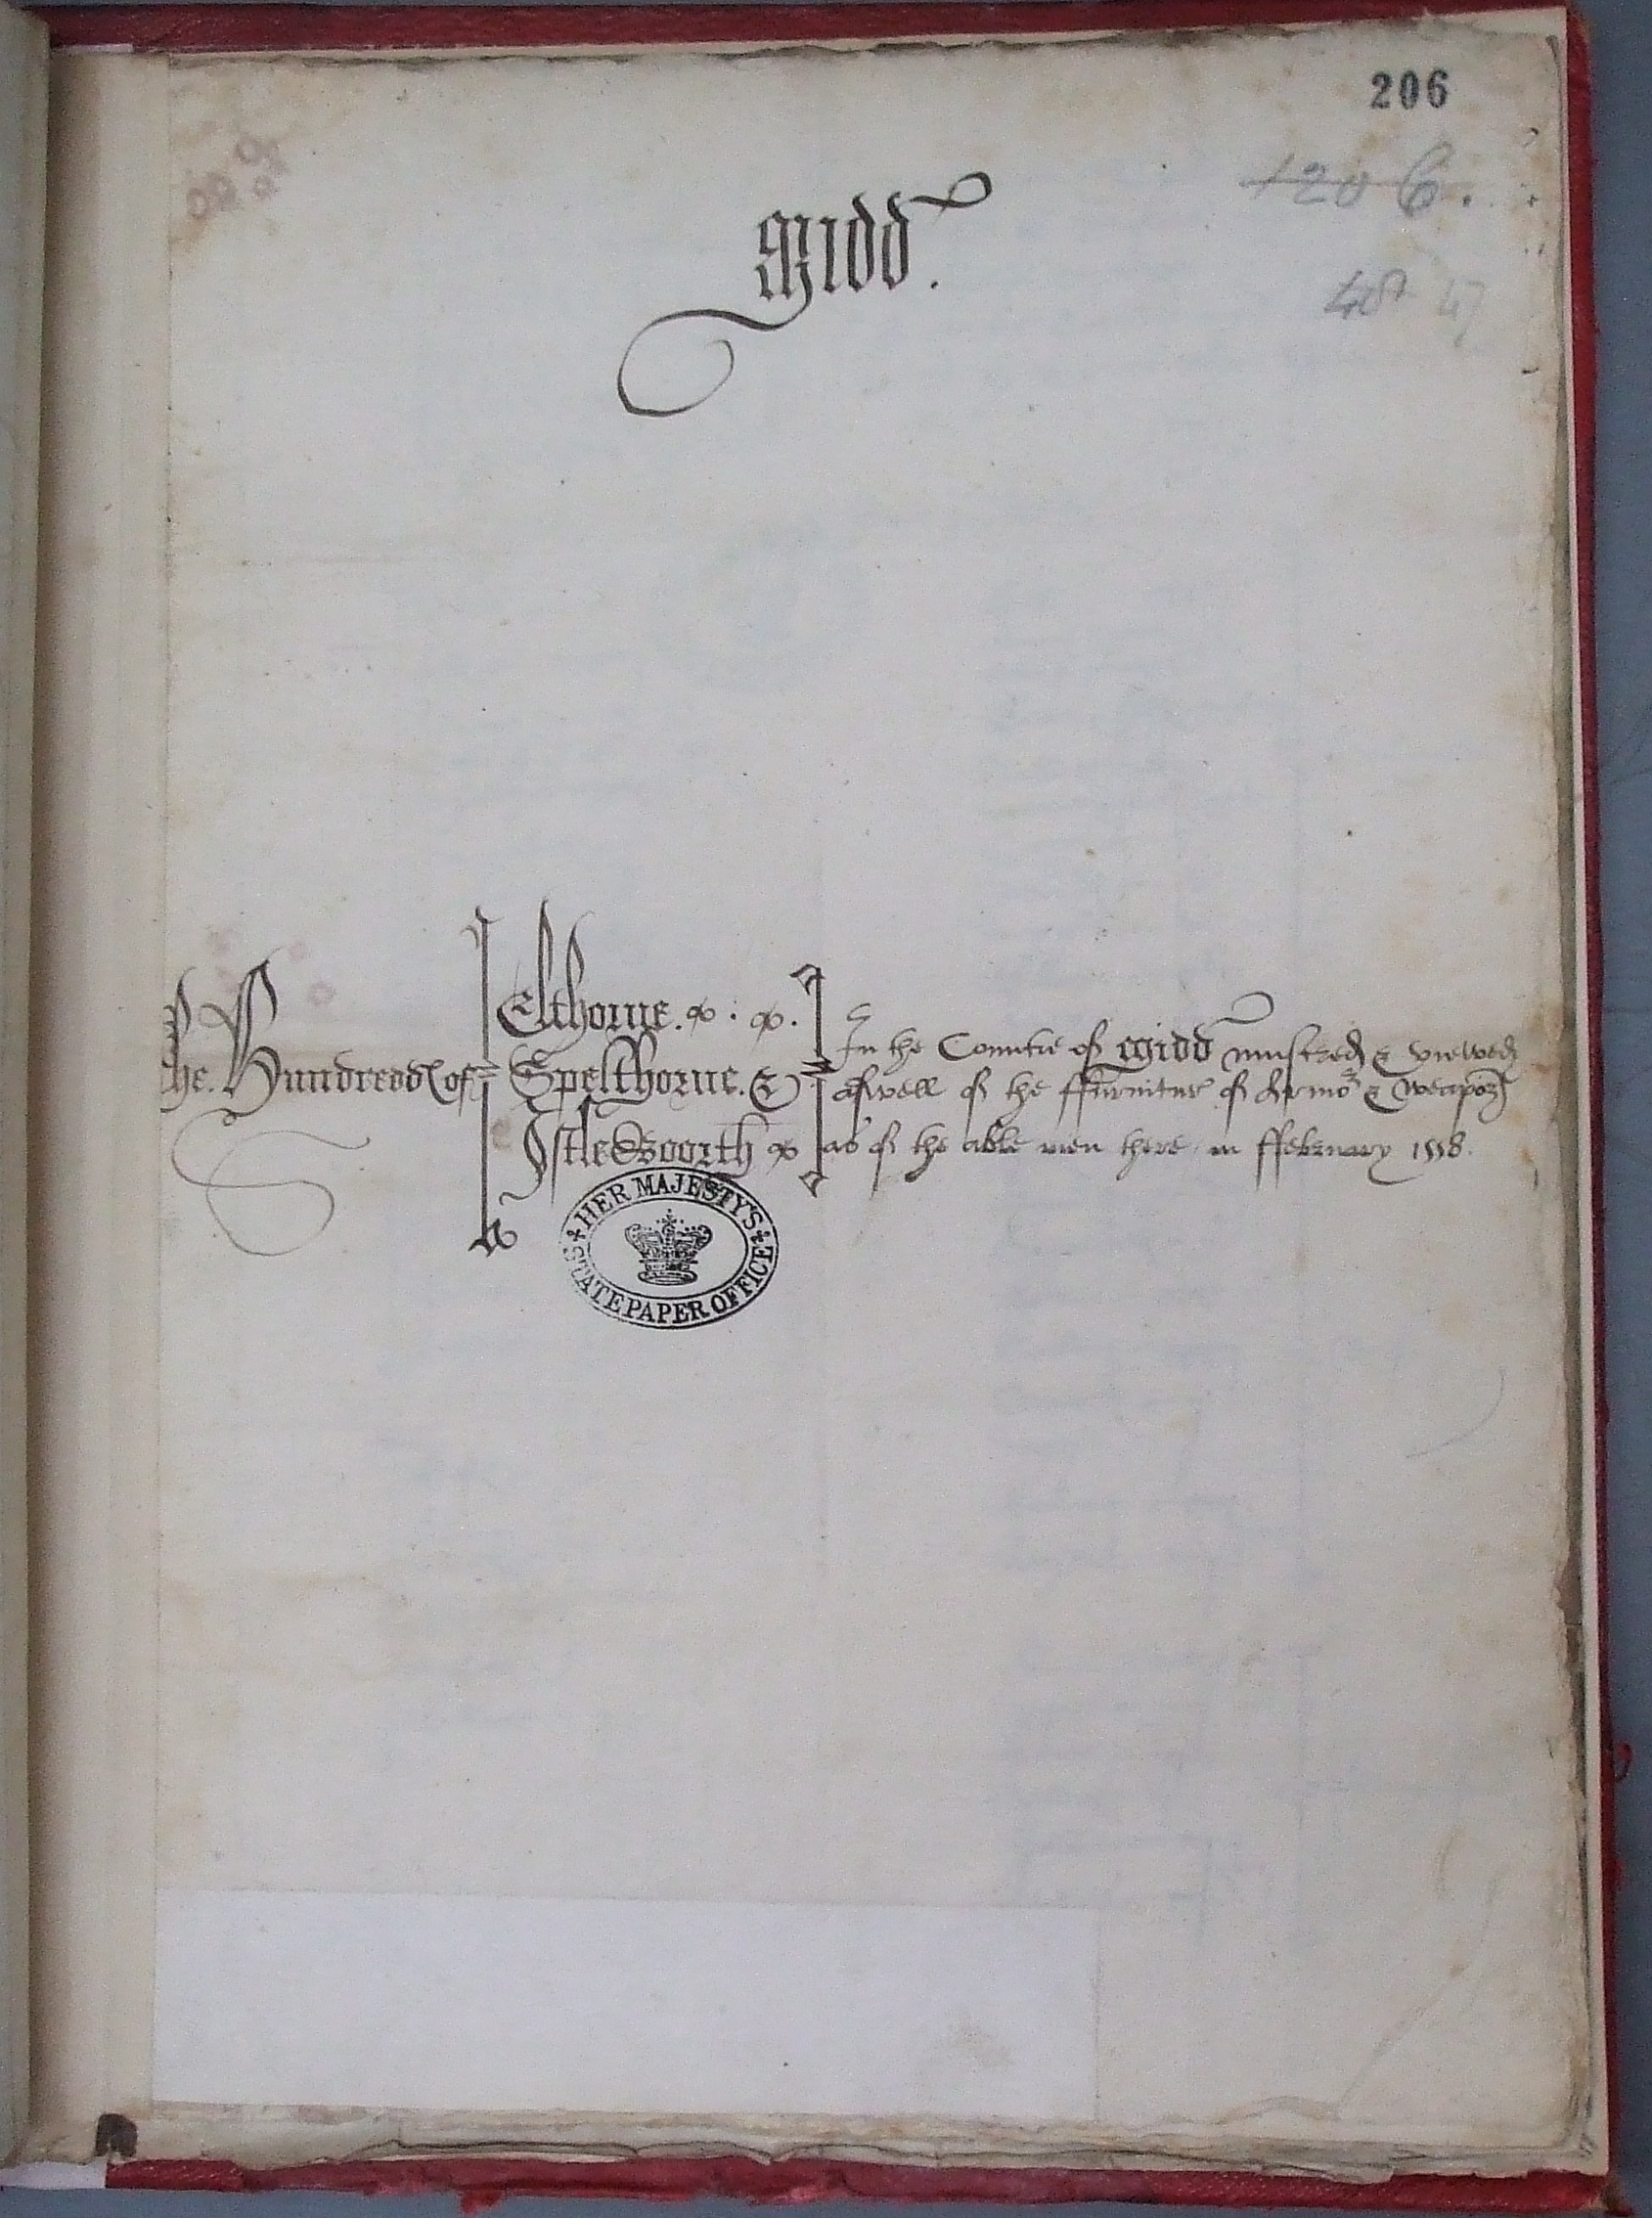 206
120 6.
47
Midd.
Elthorne.
he. Hundredd of Spelthorne. &
Istleworth
In the Countie of Midd mustred & viewed
aswell of the ffurnitur of Armor & weapon
as of the able men there in ffebruary 1558.
HER MAJESTY'S STATE PAPER OFFICE